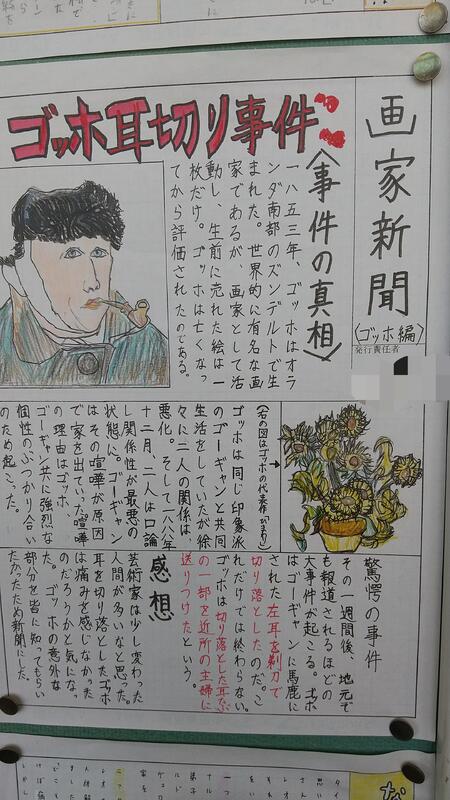 画家新聞
〈ゴッホ編〉
発行責任者
ゴッホ耳切り事件!!
〈事件の真相〉
一八五三年、ゴッホはオラ
ンダ南部のズンデルトで生
まれた。世界的に有名な画
家であるが、画家として活
動し、生前に売れた絵は一
枚だけ。ゴッホは亡くなっ
てから評価されたのである。
(右の図はゴッホの代表作「ひまわり」)
ゴッホは同じ印象派
のゴーギャンと共同
生活をしていたが徐
々に二人の関係は、
悪化。そして一八八年
十二月、二人は口論
し関係性が最悪の
状態に。ゴーギャン
はその喧嘩が原因
で家を出ていった。喧嘩
の理由はゴッホ、
ゴーギャン共に強烈な
個性のぶつかり合い
のため起こった。
驚愕の事件
その一週間後、地元で
も報道されるほどの
大事件が起こる。ゴッホ
はゴーギャンに馬鹿に
された左耳を剃刀で
切り落としたのだ。こ
れだけでは終わらない。
ゴッホは切り落とした耳たぶ
の一部を近所の主婦に
送りつけたという。
感想
芸術家は少し変わった
人間が多いなと思った。
耳を切り落としたゴッホ
は痛みを感じなかった
のだろうかと気になっ
た。ゴッホの意外な
部分を皆に知ってもらい
たかったため新聞にした。